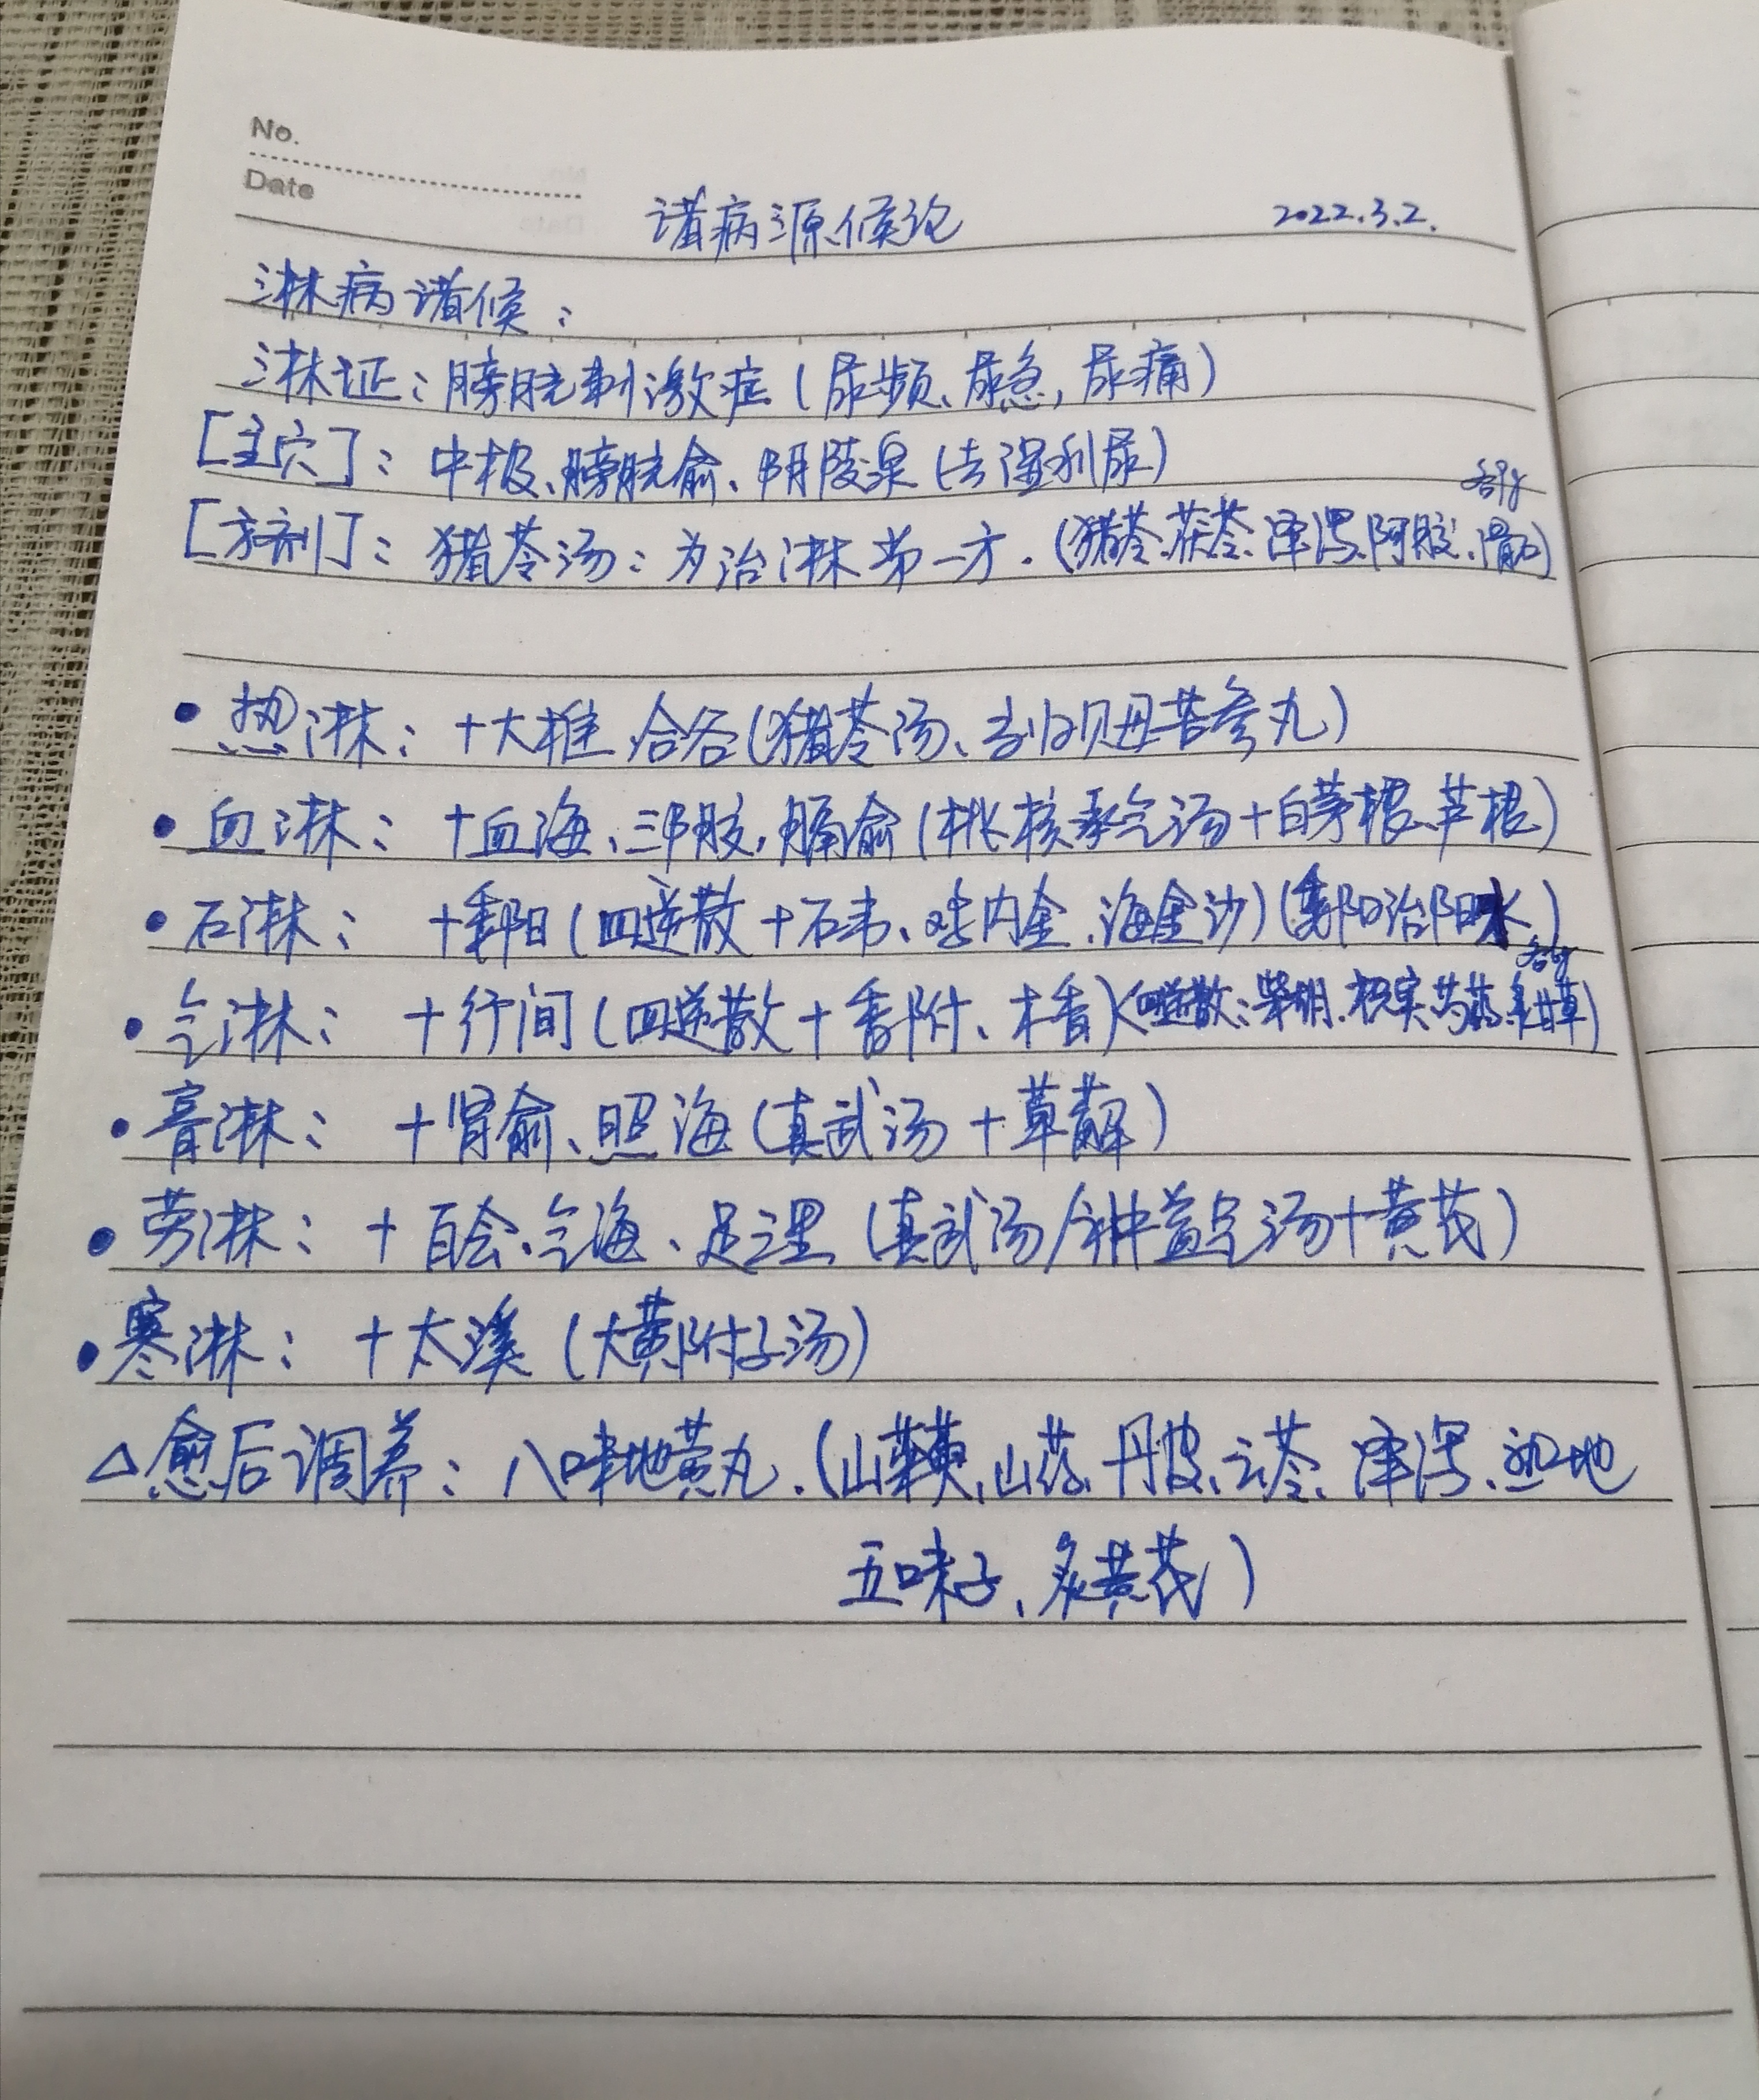 No.
Date
诸病源候论 2022.3.2.
淋病诸候：
淋证：膀胱刺激症（尿频、尿急，尿痛）
[主穴]：中极、膀胱俞、阴陵泉（去湿利尿）
[方剂]：猪苓汤：为治淋第一方.（猪苓、茯苓、泽泻、阿胶、滑石）
• 热淋：+大椎、合谷（猪苓汤、当归贝母苦参丸）
• 血淋：+血海、三阴交，膈俞（桃核承气汤+白茅根、芦根）
• 石淋：+委阳（四逆散+石韦、鸡内金、海金沙）（委阳治阳水）
• 气淋：+行间（四逆散+香附、木香）（四逆散：柴胡、枳实、芍药、炙甘草）
• 膏淋：+肾俞、照海（真武汤+萆薢）
• 劳淋：+百会、气海、足三里（真武汤/补中益气汤+黄芪）
• 寒淋：+太溪（大黄附子汤）
△愈后调养：八味地黄丸.（山茱萸、山药、丹皮、云苓、泽泻、熟地
五味子、炙黄芪）